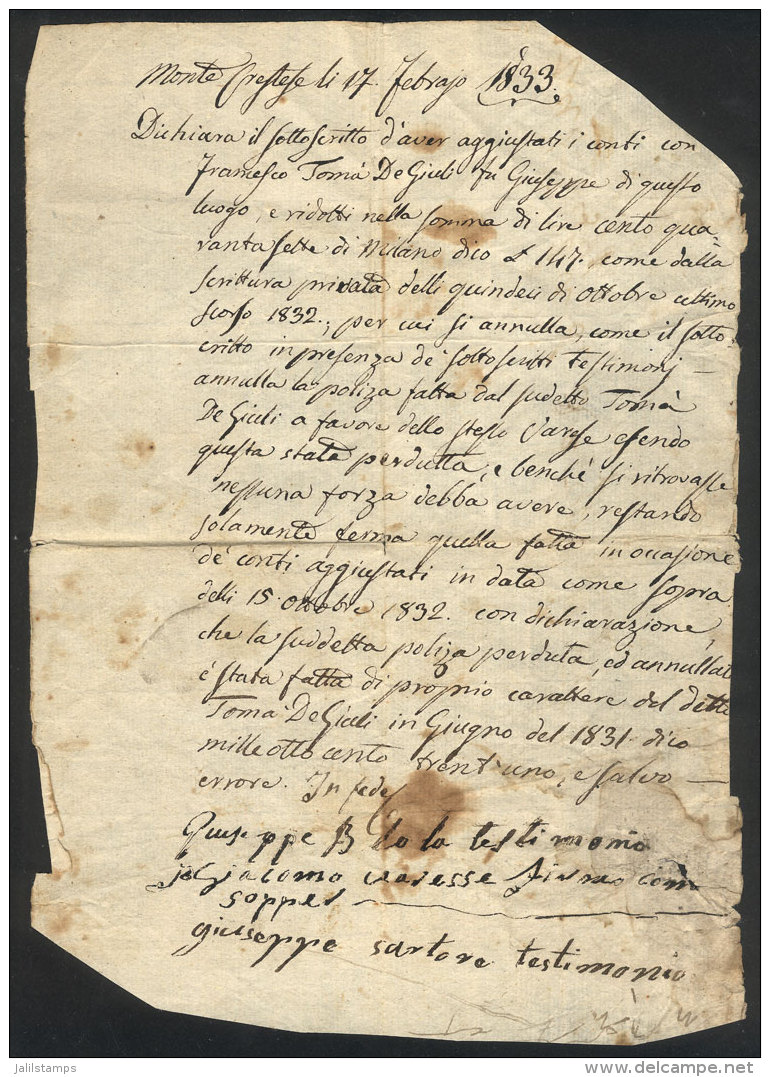 Monte Crestese li 17. febrajo 1833.
Dichiara il sottoscritto d'aver aggiustati i conti con
Francesco Tomà De Giuli fu Giuseppe di questo
luogo, e ridotti nella somma di lire cento qua
ranta sette di Milano dico £ 147. come dalla
scrittura privata delli quindeci di ottobre ultimo
scorso 1832., per cui si annulla, come il sotto
critto in presenza de' sottoscritti testimonj —
annulla la poliza fatta dal sudetto Tomà
De Giuli a favore dello stesso Varese esendo
questa stata perdutta, e benchè si ritrovasse
nessuna forza debba avere, restando
solamente ferma quella fatta in occasione
de' conti aggiustati in data come sopra
delli 15. ottobre 1832. con dichiarazione,
che la suddetta poliza perduta, ed annullat
è stata fatta di proprio carattere del detto
Tomà De Giuli in Giugno del 1831. dico
mille otto cento trent'uno, e salvo —
errore. In fede
Giuseppe testimonio
io Giacomo varesse firmo com
sopper
giuseppe sartore testimonio
jalilstamps
delcampe.net